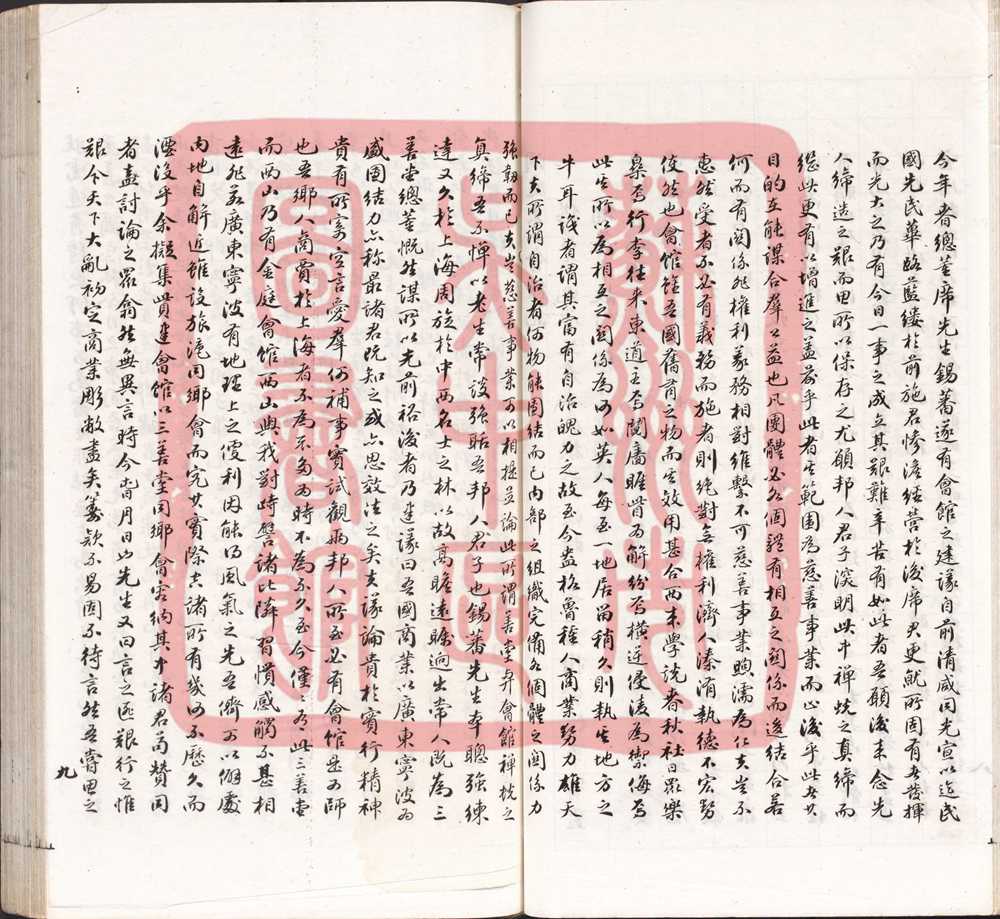 今年春總董席先生錫蕃遂有會館之建議自前清咸同光宣以迄民
國先民蓽路藍縷於前施君慘澹經營於後席君更就所固有者發揮
而光大之乃有今日一事之成立其艱難辛苦有如此者吾願後來念先
人締造之艱而思所以保存之尤願邦人君子深明此中禪蛻之真締而
繼此更有以增進之蓋前乎此者其範圍為慈善事業而止後乎此者其
目的在能謀合羣公益也凡團體必各個體有相互之關係而後結合若
何而有關係然權利義務相對維繫不可慈善事業煦濡為仁夫豈不
惠然受者不必有義務而施者則絕對無權利濟人溱洧執德不宏勢
使然也會館雖吾國舊有之物而其效用甚合西來學說春秋社日眾樂
桑焉行李往來東道主焉鬩牆睚眥為解紛焉橫逆侵凌為禦侮焉
此其所以為相互之關係為何如英人每至一地居留稍久則執其地方之
牛耳議者謂其富有自治魄力之故至今盎格魯種人商業勢力雄天
下夫所謂自治者何物能團結而已內部之組織完備各個體之關係力
強韌而已夫豈慈善事業可以相提並論此所謂善堂與會館禪蛻之
真締吾不憚以老生常談強聒吾邦人君子也錫蕃先生本聰強練
達又久於上海周旋於中西名士之林以故高瞻遠矚迥出常人既為三
善堂總董慨然謀所以光前裕後者乃建議曰吾國商業以廣東寧波為
盛團結力亦稱最諸君既知之或亦思效法之矣夫議論貴於實行精神
貴有所寄空言愛羣何補事實試觀兩邦人所至必有會館是可師
也吾鄉人商賈於上海者不為不多為時不為不久至今僅僅有此三善堂
而西山乃有金庭會館西山與我對峙譬諸比鄰習慣感觸不甚相
遠非若廣東寧波有地理上之便利因能得風氣之先吾儕可以僻處
內地自解近雖設旅滬同鄉會而究其實際夫諸所有幾何不歷久而
湮沒乎余擬集貲建會館以三善堂同鄉會容納其中諸君苟贊同
者盍討論之眾翕然無異言時今年月日也先生又曰言之匪艱行之惟
艱今天下大亂初定商業彫敝盡矣籌款不易固不待言然吾嘗思之
九